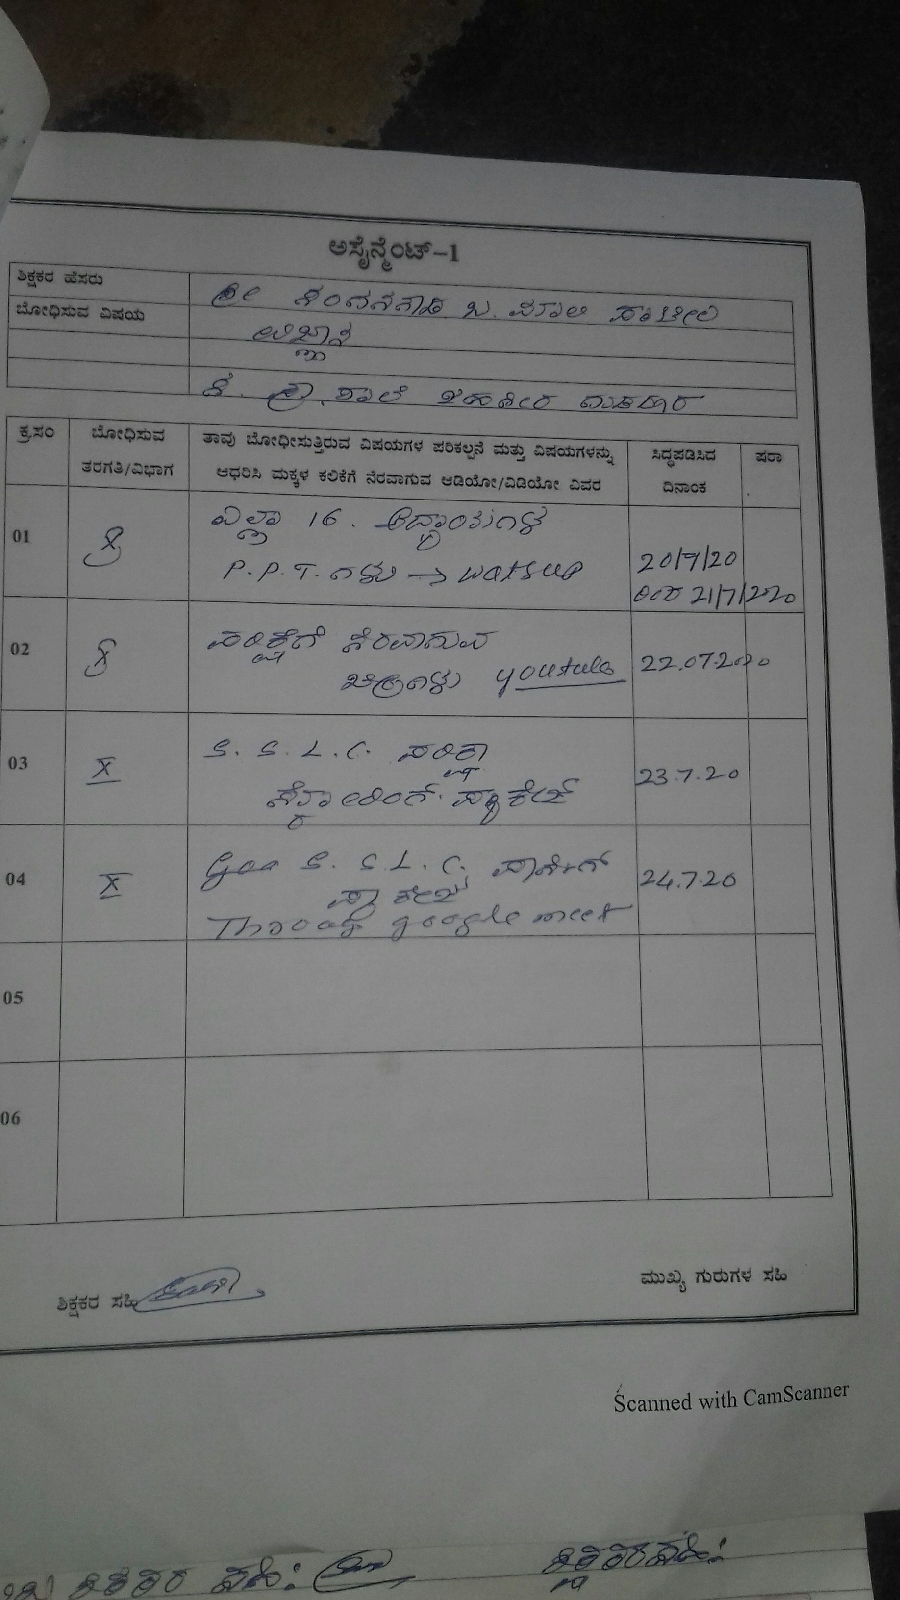 ಅಸೈನ್ಮೆಂಟ್-1
ಶಿಕ್ಷಕರ ಹೆಸರು ಶ್ರೀ
ಬೋಧಿಸುವ ವಿಷಯ ವಿಜ್ಞಾನ
ಸ. ಪ್ರೌ. ಶಾಲೆ
ಕ್ರ.ಸಂ ಬೋಧಿಸುವ ತರಗತಿ/ವಿಭಾಗ ತಾವು ಬೋಧೀಸುತ್ತಿರುವ ವಿಷಯಗಳ ಪರಿಕಲ್ಪನೆ ಮತ್ತು ವಿಷಯಗಳನ್ನು ಆಧರಿಸಿ ಮಕ್ಕಳ ಕಲಿಕೆಗೆ ನೆರವಾಗುವ ಆಡಿಯೋ/ವಿಡಿಯೋ ವಿವರ ಸಿದ್ಧಪಡಿಸಿದ ದಿನಾಂಕ ಷರಾ
01 ಎಲ್ಲಾ 16. ಅಧ್ಯಾಯಗಳ
P.P.T.ಗಳು → watsup 20/7/20
21/7/2020
02 ಪರೀಕ್ಷೆಗೆ ನೆರವಾಗುವ
ಚಿತ್ರಗಳು youtube 22.07.2020
03 X S.S.L.C. ಪರೀಕ್ಷಾ
ಸ್ಕೋರಿಂಗ್ ಪ್ಯಾಕೇಜ್ 23.7.20
04 X Goa S.S.L.C. ಪಾಸಿಂಗ್
ಪ್ಯಾಕೇಜ
Through google meet 24.7.20
05
06
ಶಿಕ್ಷಕರ ಸಹಿ
ಮುಖ್ಯ ಗುರುಗಳ ಸಹಿ
Scanned with CamScanner
ಶಿಕ್ಷಕರ ಸಹಿ: